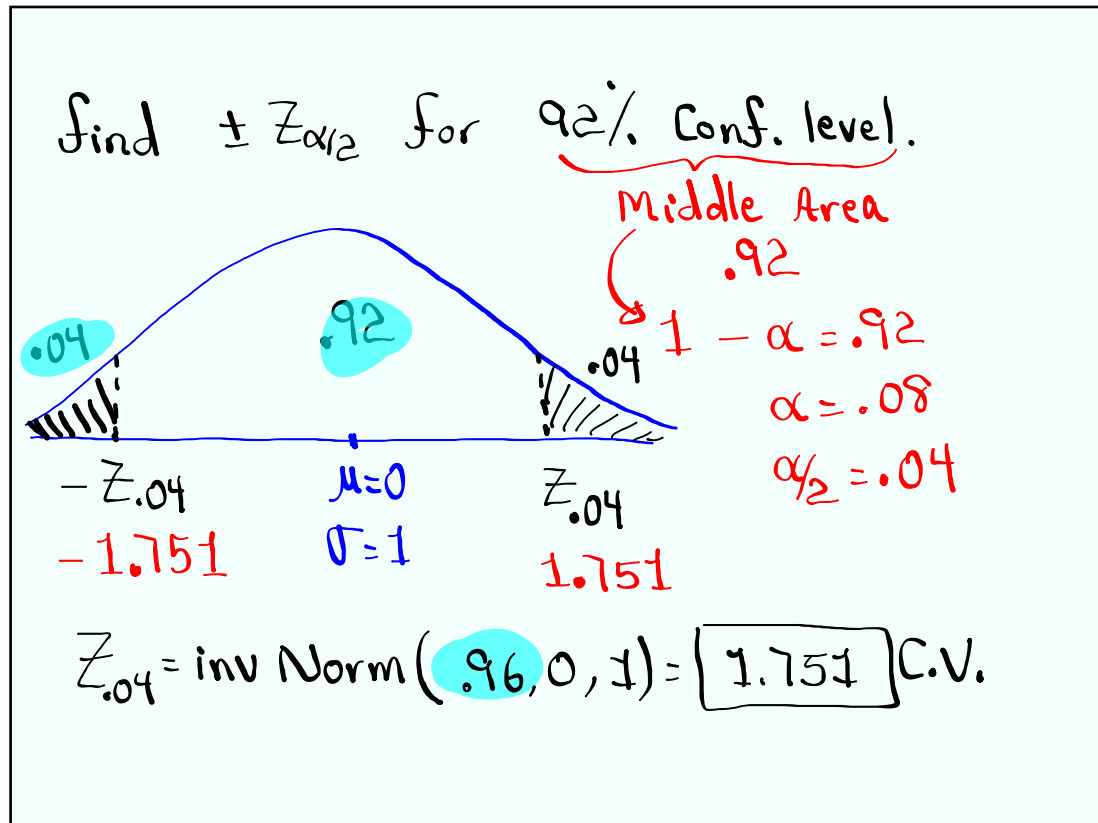 find ± Zα/2 for 92% Conf. level.
Middle Area
.92
.04 .92 .04 1 - α = .92
α = .08
α/2 = .04
- Z.04 μ=0 Z.04
- 1.751 σ=1 1.751
Z.04 = inv Norm( .96, 0, 1) = 1.751 C.V.